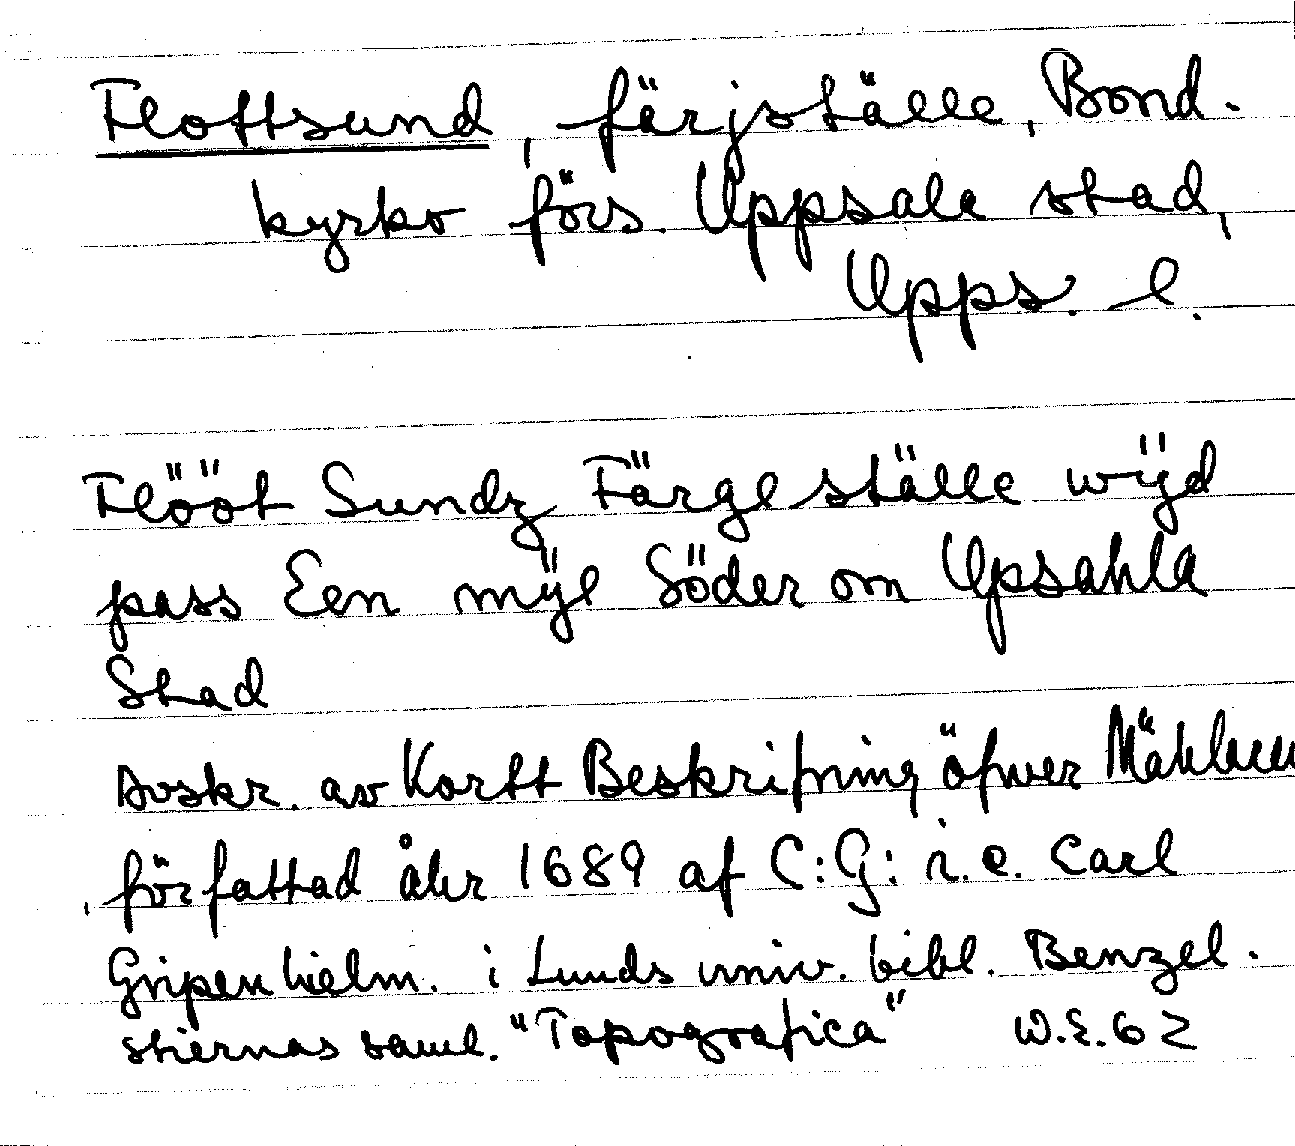 Flottsund, färjställe, Bond-
kyrko förs. Uppsala stad,
Upps. l.
Flööt Sundz Färgeställe wijd
pass Een mÿl Söder om Upsahla
Stad
Avskr. av Kortt Beskrifning öfwer Mählaren
författad åhr 1689 af C:G: i.e. Carl
Gripenhielm. i Lunds univ. bibl. Benzel-
stiernas saml. "Topografica" W.E.62